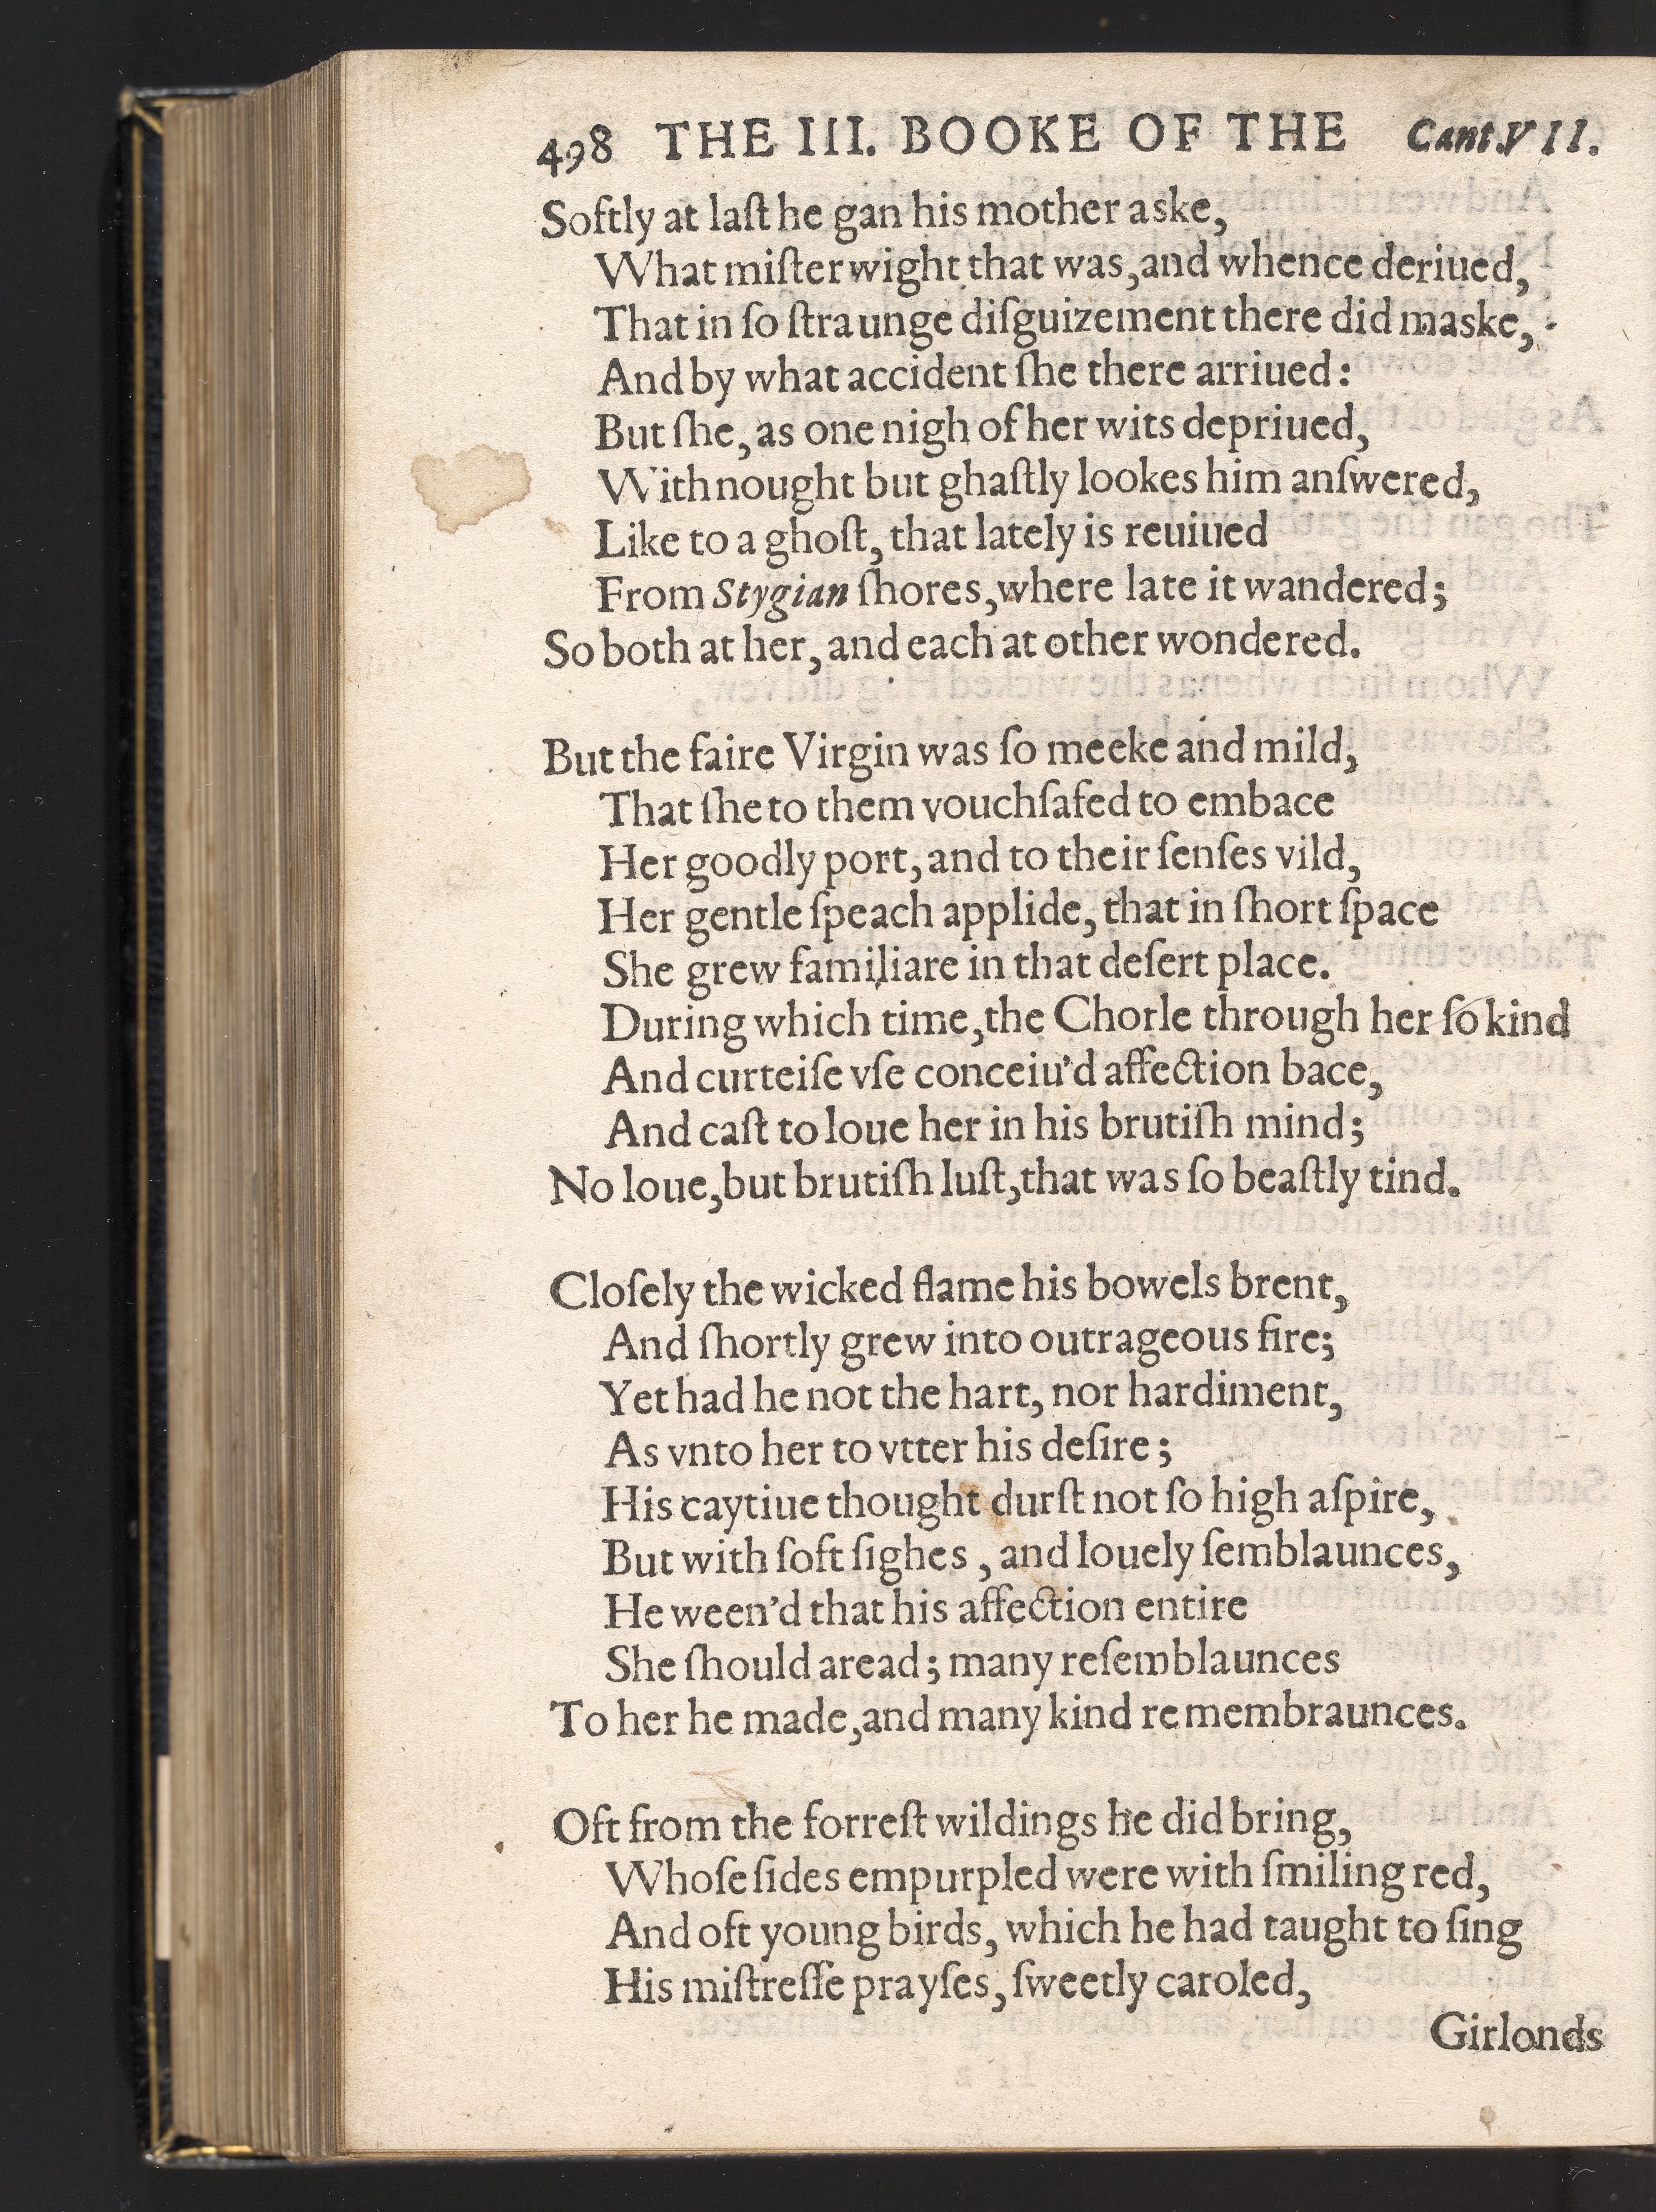 498 THE III. BOOKE OF THE Cant.VII.
Softly at laſt he gan his mother aske,
What miſter wight that was, and whence deriued,
That in ſo ſtraunge diſguizement there did maske,
And by what accident ſhe there arriued:
But ſhe, as one nigh of her wits depriued,
With nought but ghaſtly lookes him anſwered,
Like to a ghoſt, that lately is reuiued
From Stygian ſhores, where late it wandered;
So both at her, and each at other wondered.
But the faire Virgin was ſo meeke and mild,
That ſhe to them vouchſafed to embace
Her goodly port, and to their ſenſes vild,
Her gentle ſpeach applide, that in ſhort ſpace
She grew familiare in that deſert place.
During which time, the Chorle through her ſo kind
And curteiſe vſe conceiu'd affection bace,
And caſt to loue her in his brutiſh mind;
No loue, but brutiſh luſt, that was ſo beaſtly tind.
Cloſely the wicked flame his bowels brent,
And ſhortly grew into outrageous fire;
Yet had he not the hart, nor hardiment,
As vnto her to vtter his deſire;
His caytiue thought durſt not ſo high aſpire,
But with ſoft ſighes, and louely ſemblaunces,
He ween'd that his affection entire
She ſhould aread; many reſemblaunces
To her he made, and many kind remembraunces.
Oft from the forreſt wildings he did bring,
Whoſe ſides empurpled were with ſmiling red,
And oft young birds, which he had taught to ſing
His miſtreſſe prayſes, ſweetly caroled,
Girlonds